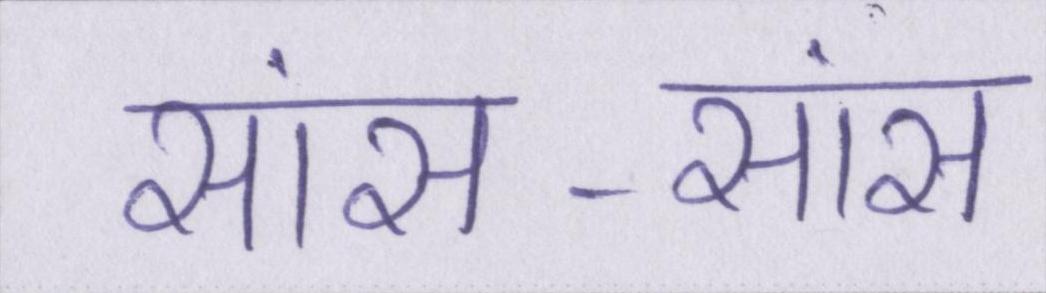 सांस-सांस